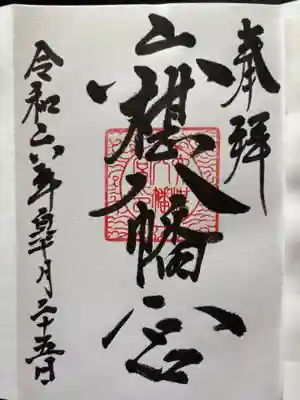 奉拝
六椹八幡宮
令和六年十月二十五日